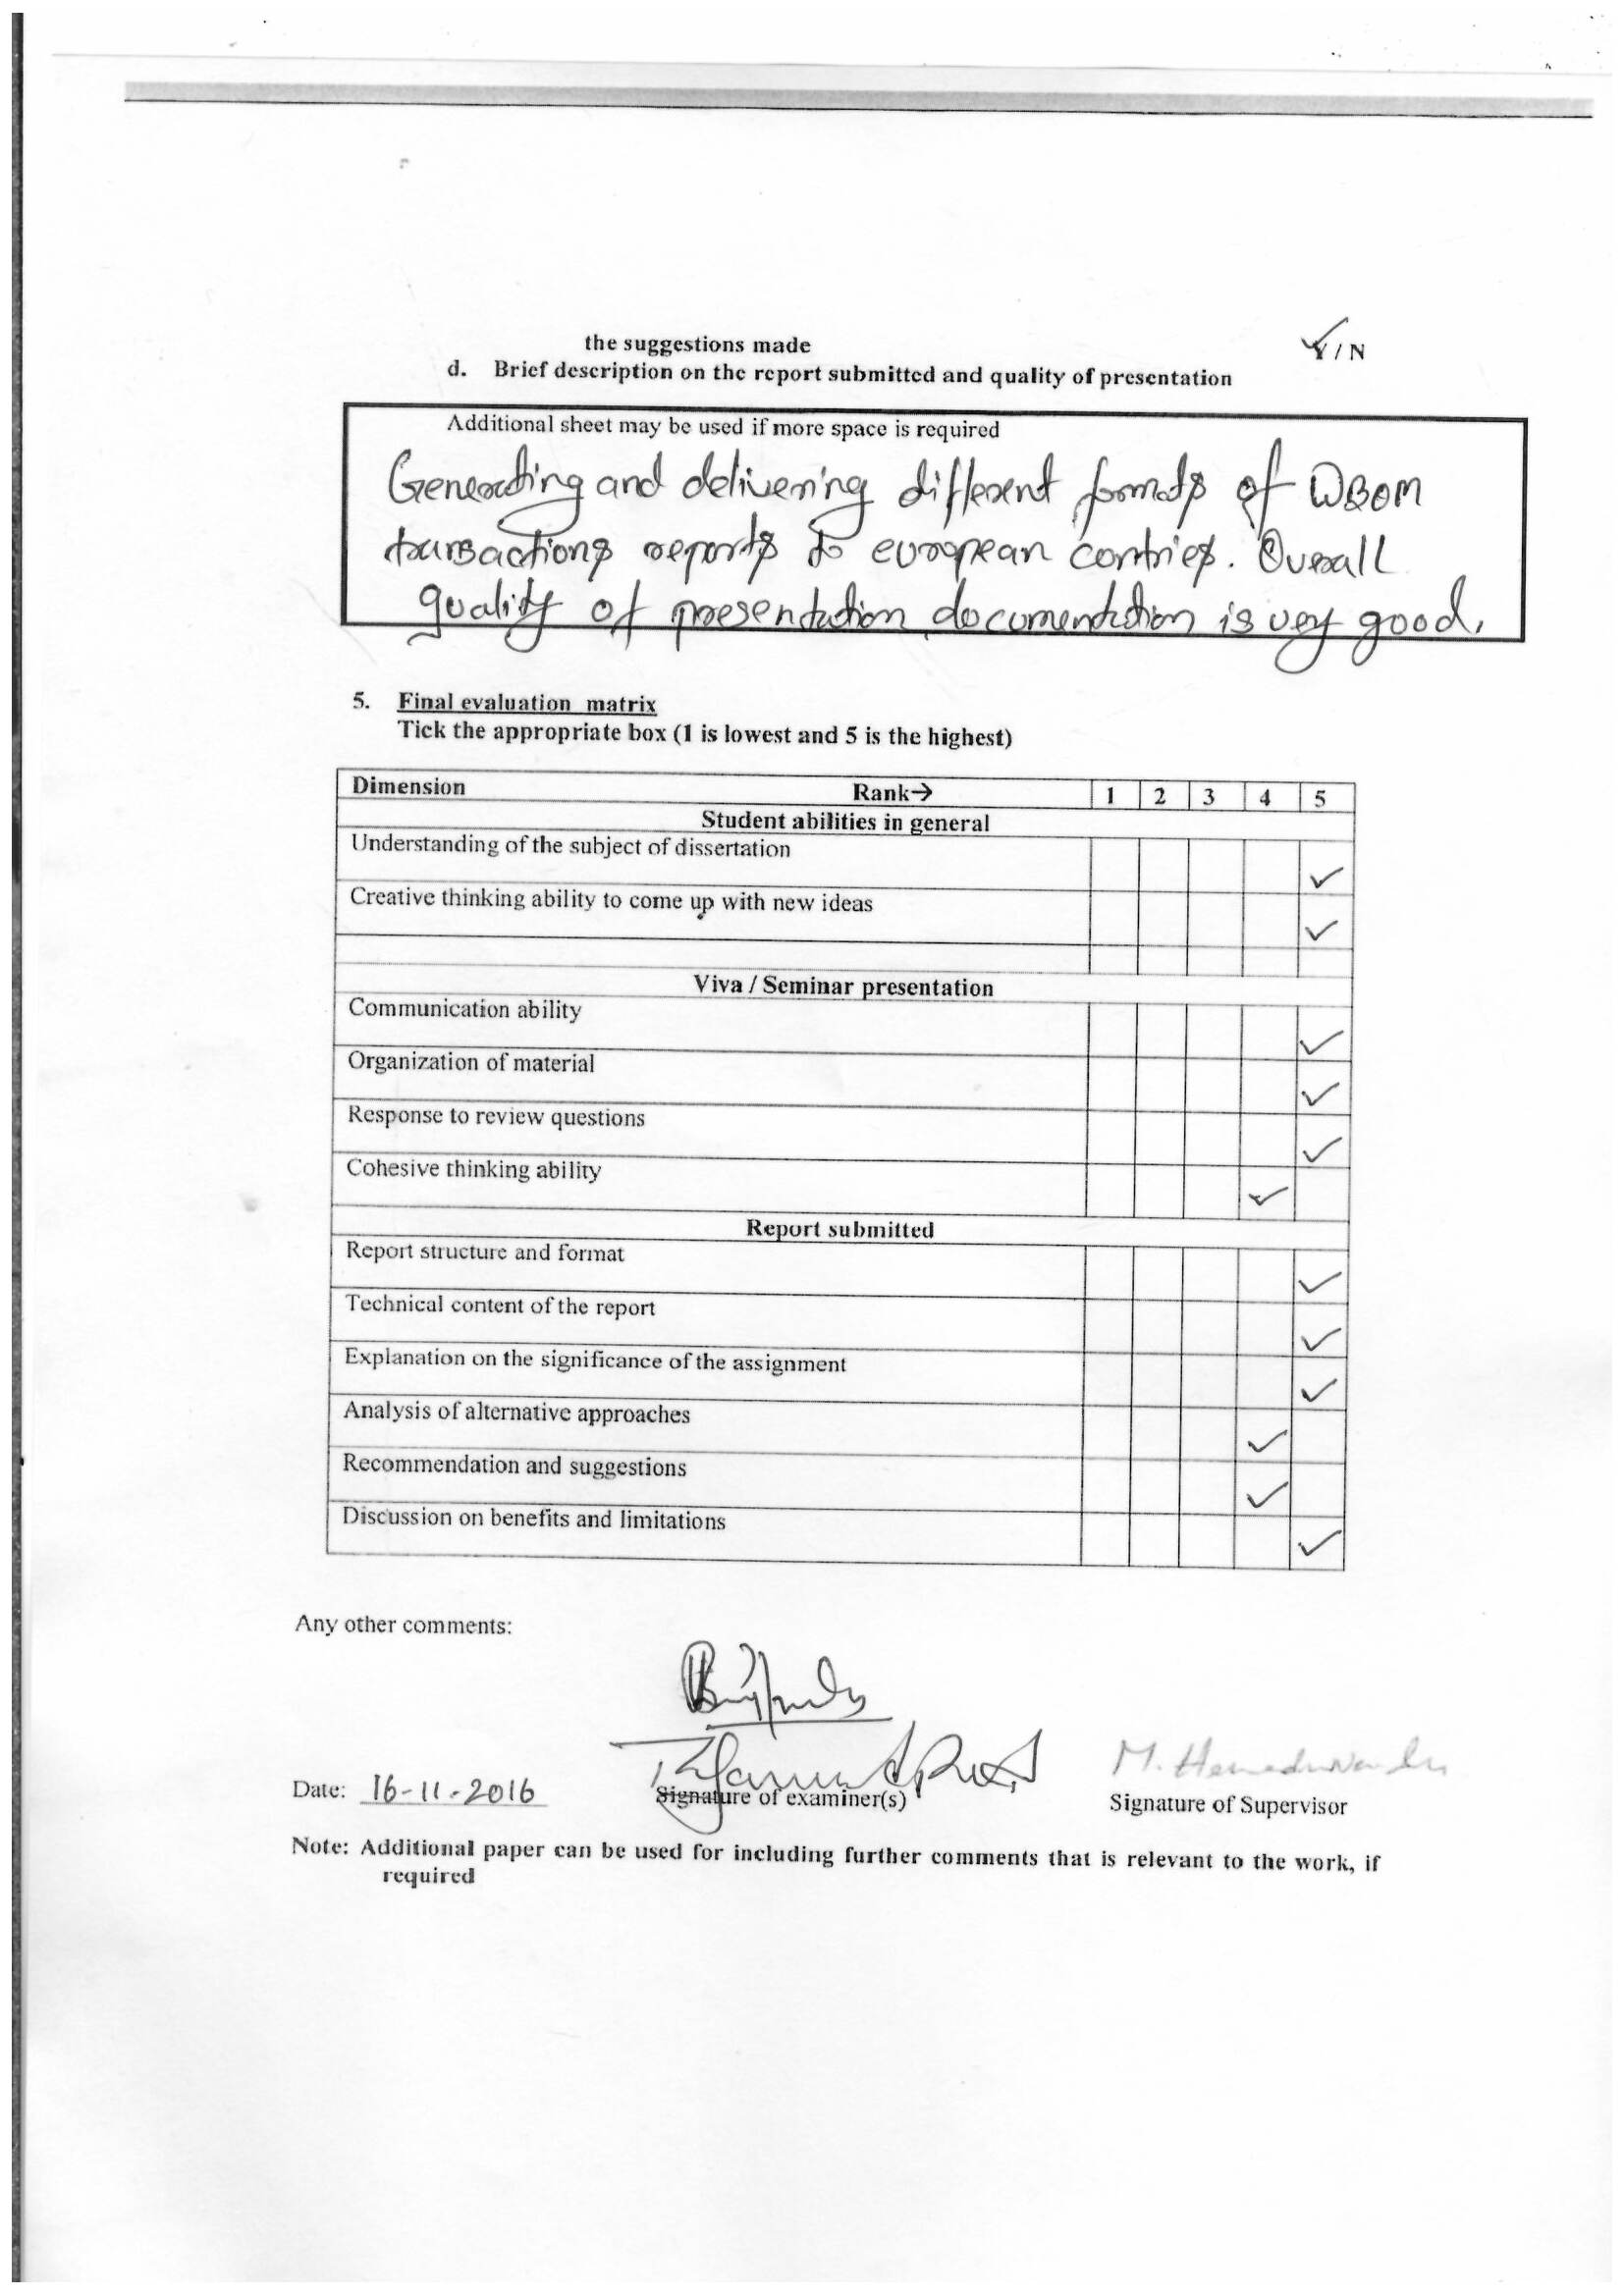 the suggestions made Y / N
d. Brief description on the report submitted and quality of presentation
Additional sheet may be used if more space is required
Generating and delivering different formats of WBOM
transactions reports to european contries. Overall
quality of presentation documentation is very good.
5. Final evaluation matrix
Tick the appropriate box (1 is lowest and 5 is the highest)
Dimension Rank→ 1 2 3 4 5
Student abilities in general
Understanding of the subject of dissertation ✓
Creative thinking ability to come up with new ideas ✓
Viva / Seminar presentation
Communication ability ✓
Organization of material ✓
Response to review questions ✓
Cohesive thinking ability ✓
Report submitted
Report structure and format ✓
Technical content of the report ✓
Explanation on the significance of the assignment ✓
Analysis of alternative approaches ✓
Recommendation and suggestions ✓
Discussion on benefits and limitations ✓
Any other comments:
Date: 16-11-2016
Signature of examiner(s)
M.
Signature of Supervisor
Note: Additional paper can be used for including further comments that is relevant to the work, if
required